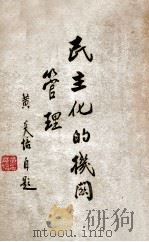 民主化的機関
管理
黄炎培自題